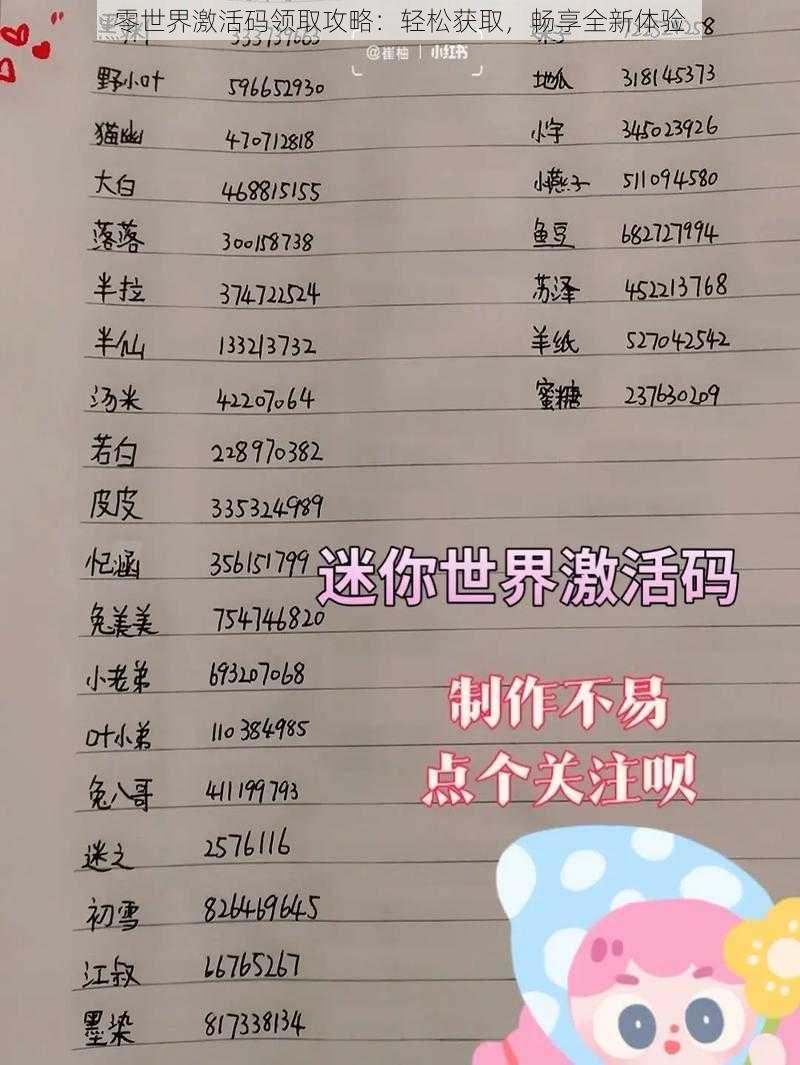 零世界激活码领取攻略：轻松获取，畅享全新体验
@崔柚 | 小红书
野小叶 596652930
猫幽 470712818
大白 468815155
落落 300158738
半拉 374722524
半仙 133213732
汤米 42207064
若白 228970382
皮皮 335324989
忆涵 356151799
兔美美 754746820
小老弟 693207068
叶小弟 110384985
兔八哥 411199793
迷之 2576116
初雪 826469645
江叔 66765267
墨染 817338134
地瓜 318145373
小字 345023926
小燕子 511094580
鱼豆 682727994
苏泽 452213768
羊纸 527042542
蜜糖 237630209
迷你世界激活码
制作不易
点个关注呗